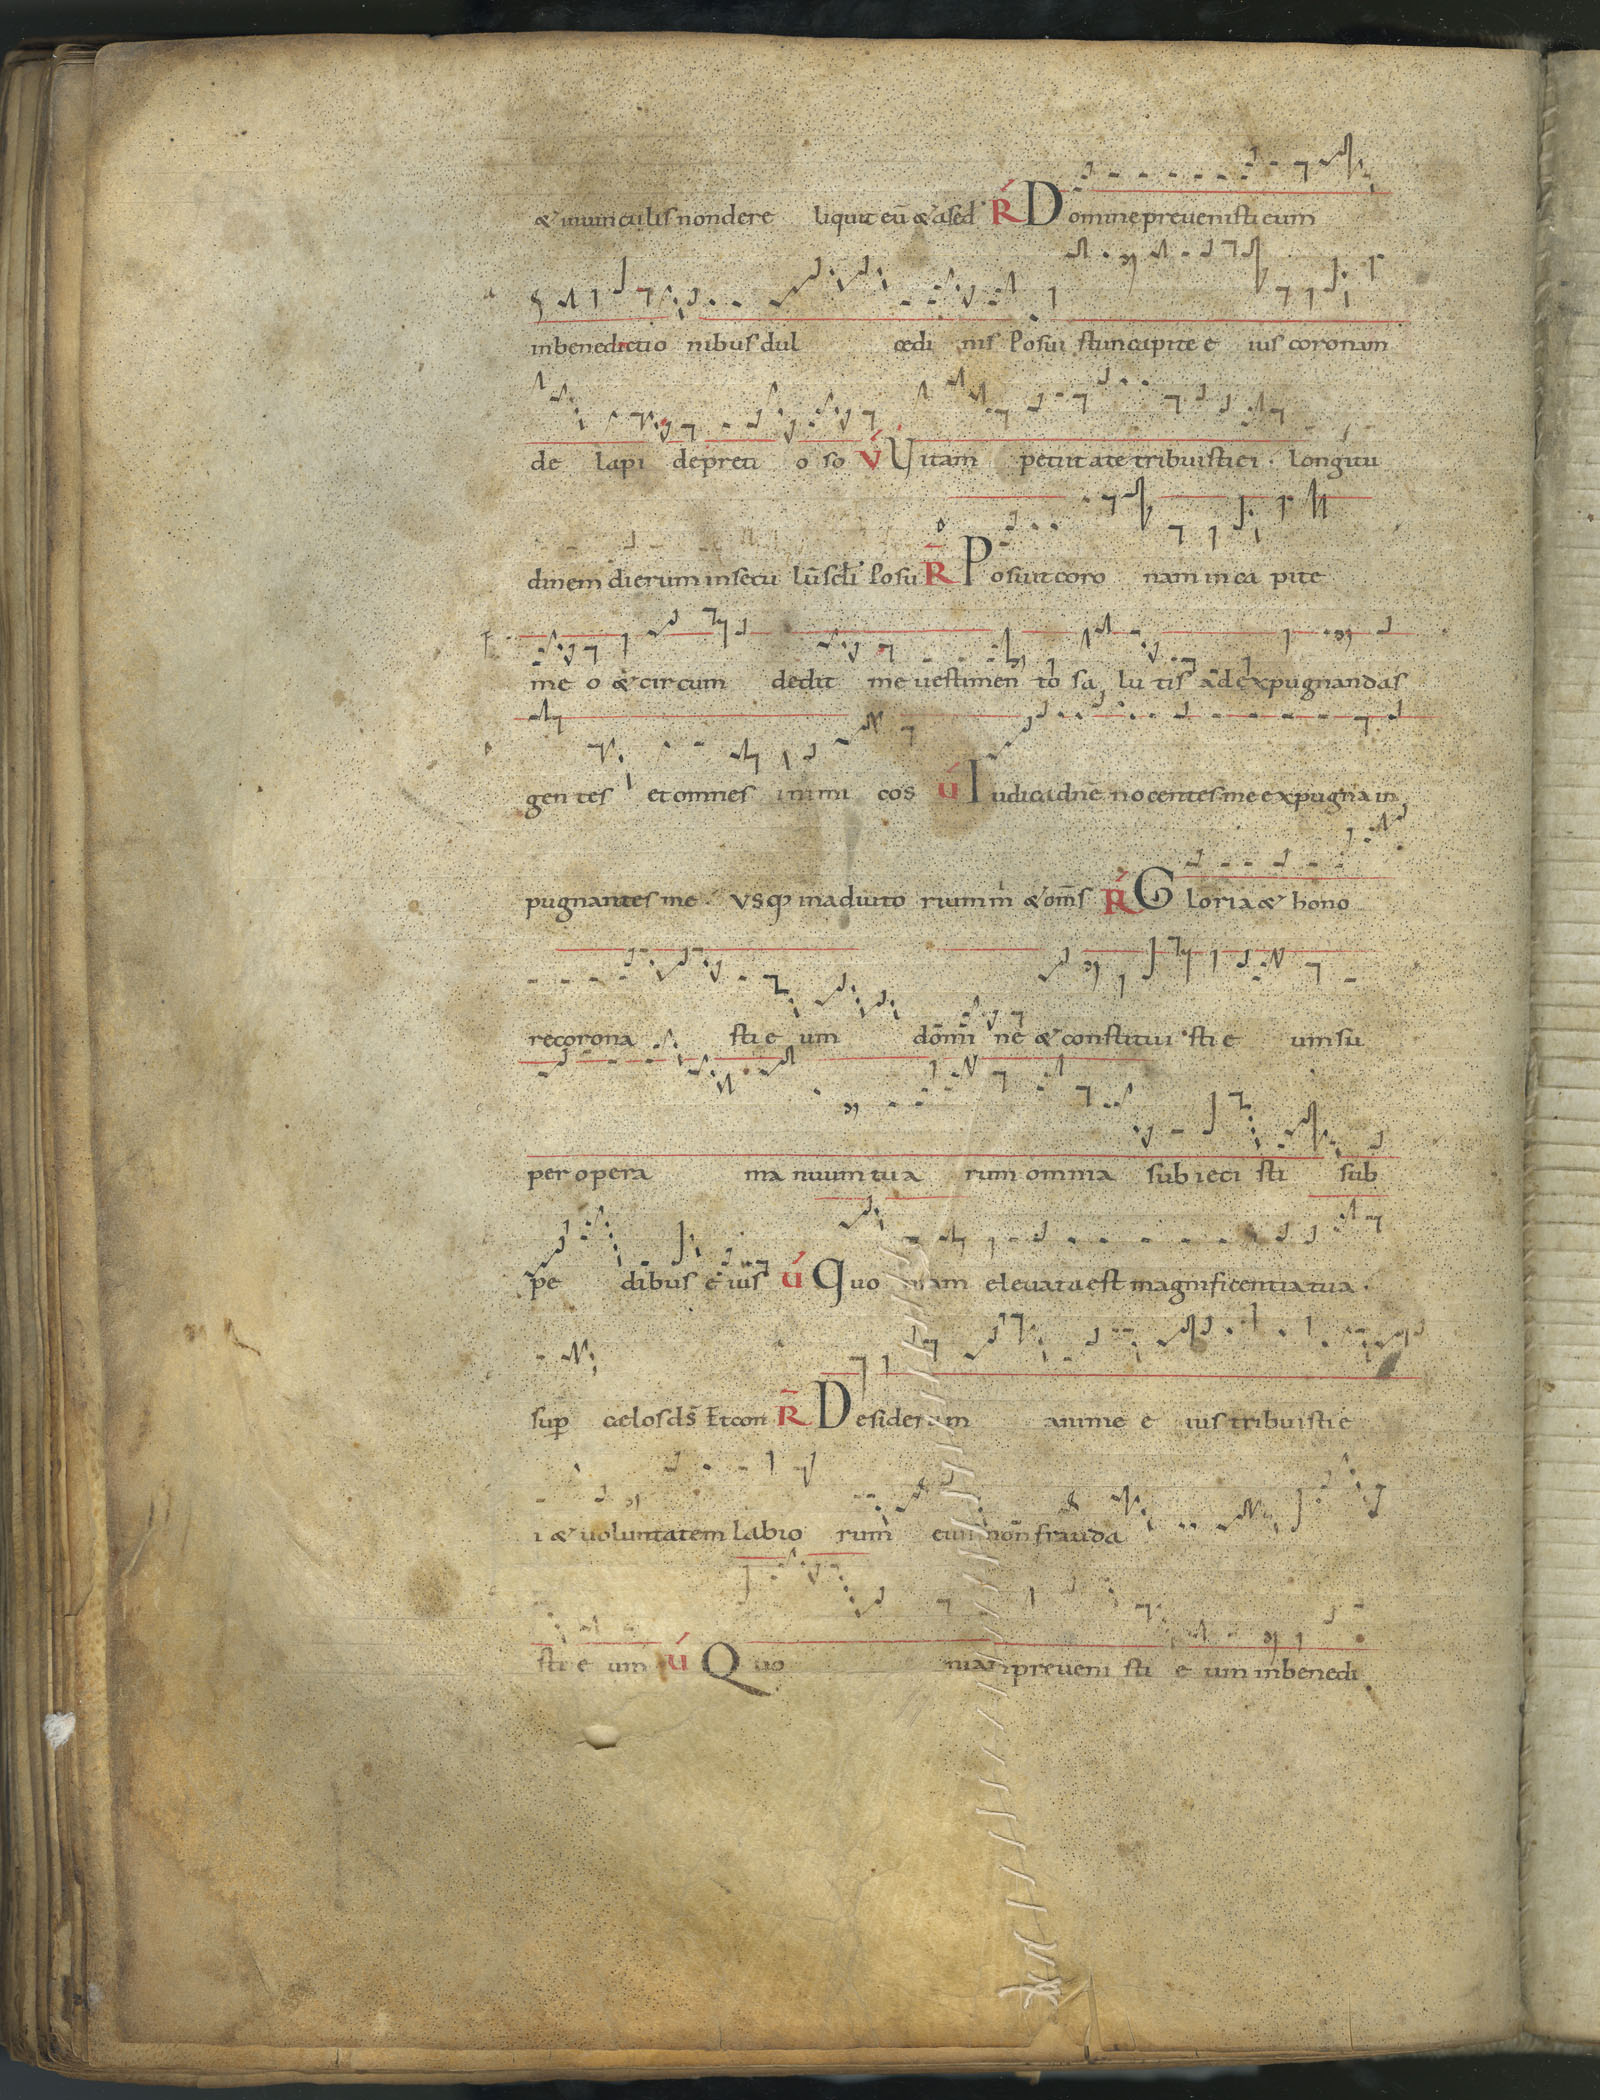 & inuinculis nondere liquit eū & ased R̃ Domine preuenisti eum
inbenedictio nibus dul cedi nis Posui stuncapite e ius coronam
de lapi depreti o so V́ Uitam petiit ate tribuisti ei. longitu
dinem dierum insecu lūsc̄li Posu R̃ Posuit coro nam in ca pite
me o & circum dedit me uestimen to sa lu tis ad expugnandas
gentes et omnes inimi cos Ú Iudica dn̄e nocentes me expugna in
pugnantes me. usq; inadiuto rium m̄ & om̄s R̃ Gloria & hono
re corona sti e um dom̄i ne & constitui sti e um su
per opera ma nuum tua rum omnia subieci sti sub
pe dibus e ius Ú Quo niam eleuata est magnificentia tua.
sup celos ds̄ Et con R̃ Desiderium anime e ius tribuisti e
i & uoluntatem labio rum eius non frauda
sti e um Ú Quo niam preueni sti e um inbenedi